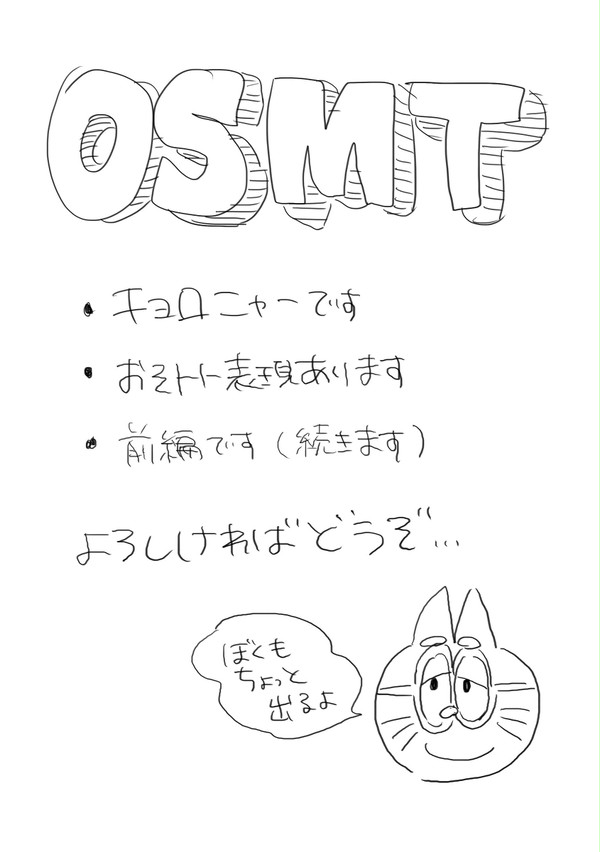 OSMT
• キョロニャーです
• おそトト表現あります
• 前編です（続きます）
よろしければどうぞ…
ぼくも
ちょっと
出るよ